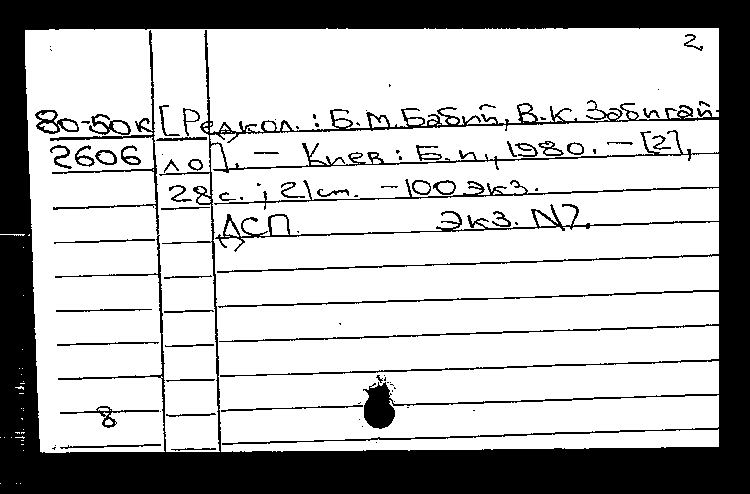 2
80-50к [Редкол.: Б.М. Бабий, В.К. Забигай-
2606 ло]. — Киев: Б.и., 1980. — [2],
28 с.; 21 см. — 100 экз.
ДСП. Экз. N2.
8